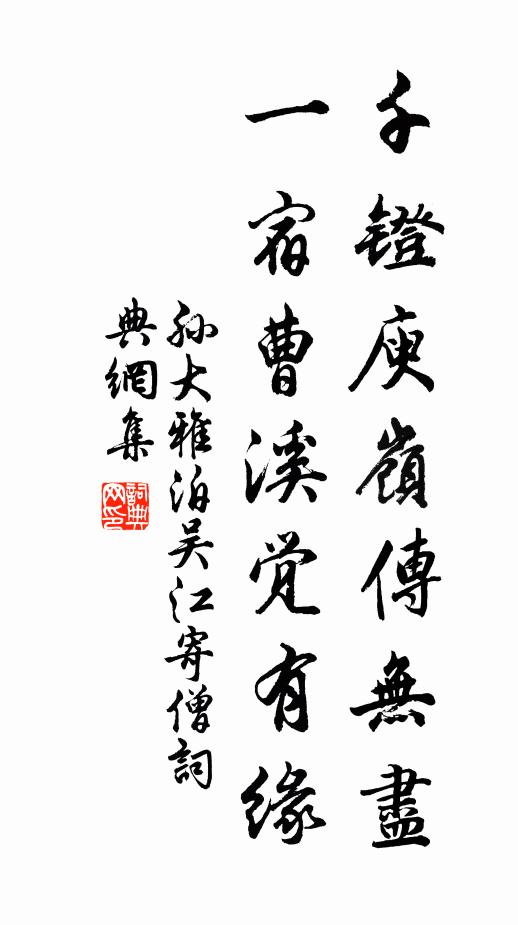 千鐙庾嶺傳無盡
一宿曹溪覺有緣
孫大雅泊吴江寄僧詞
典網集
詞典网印